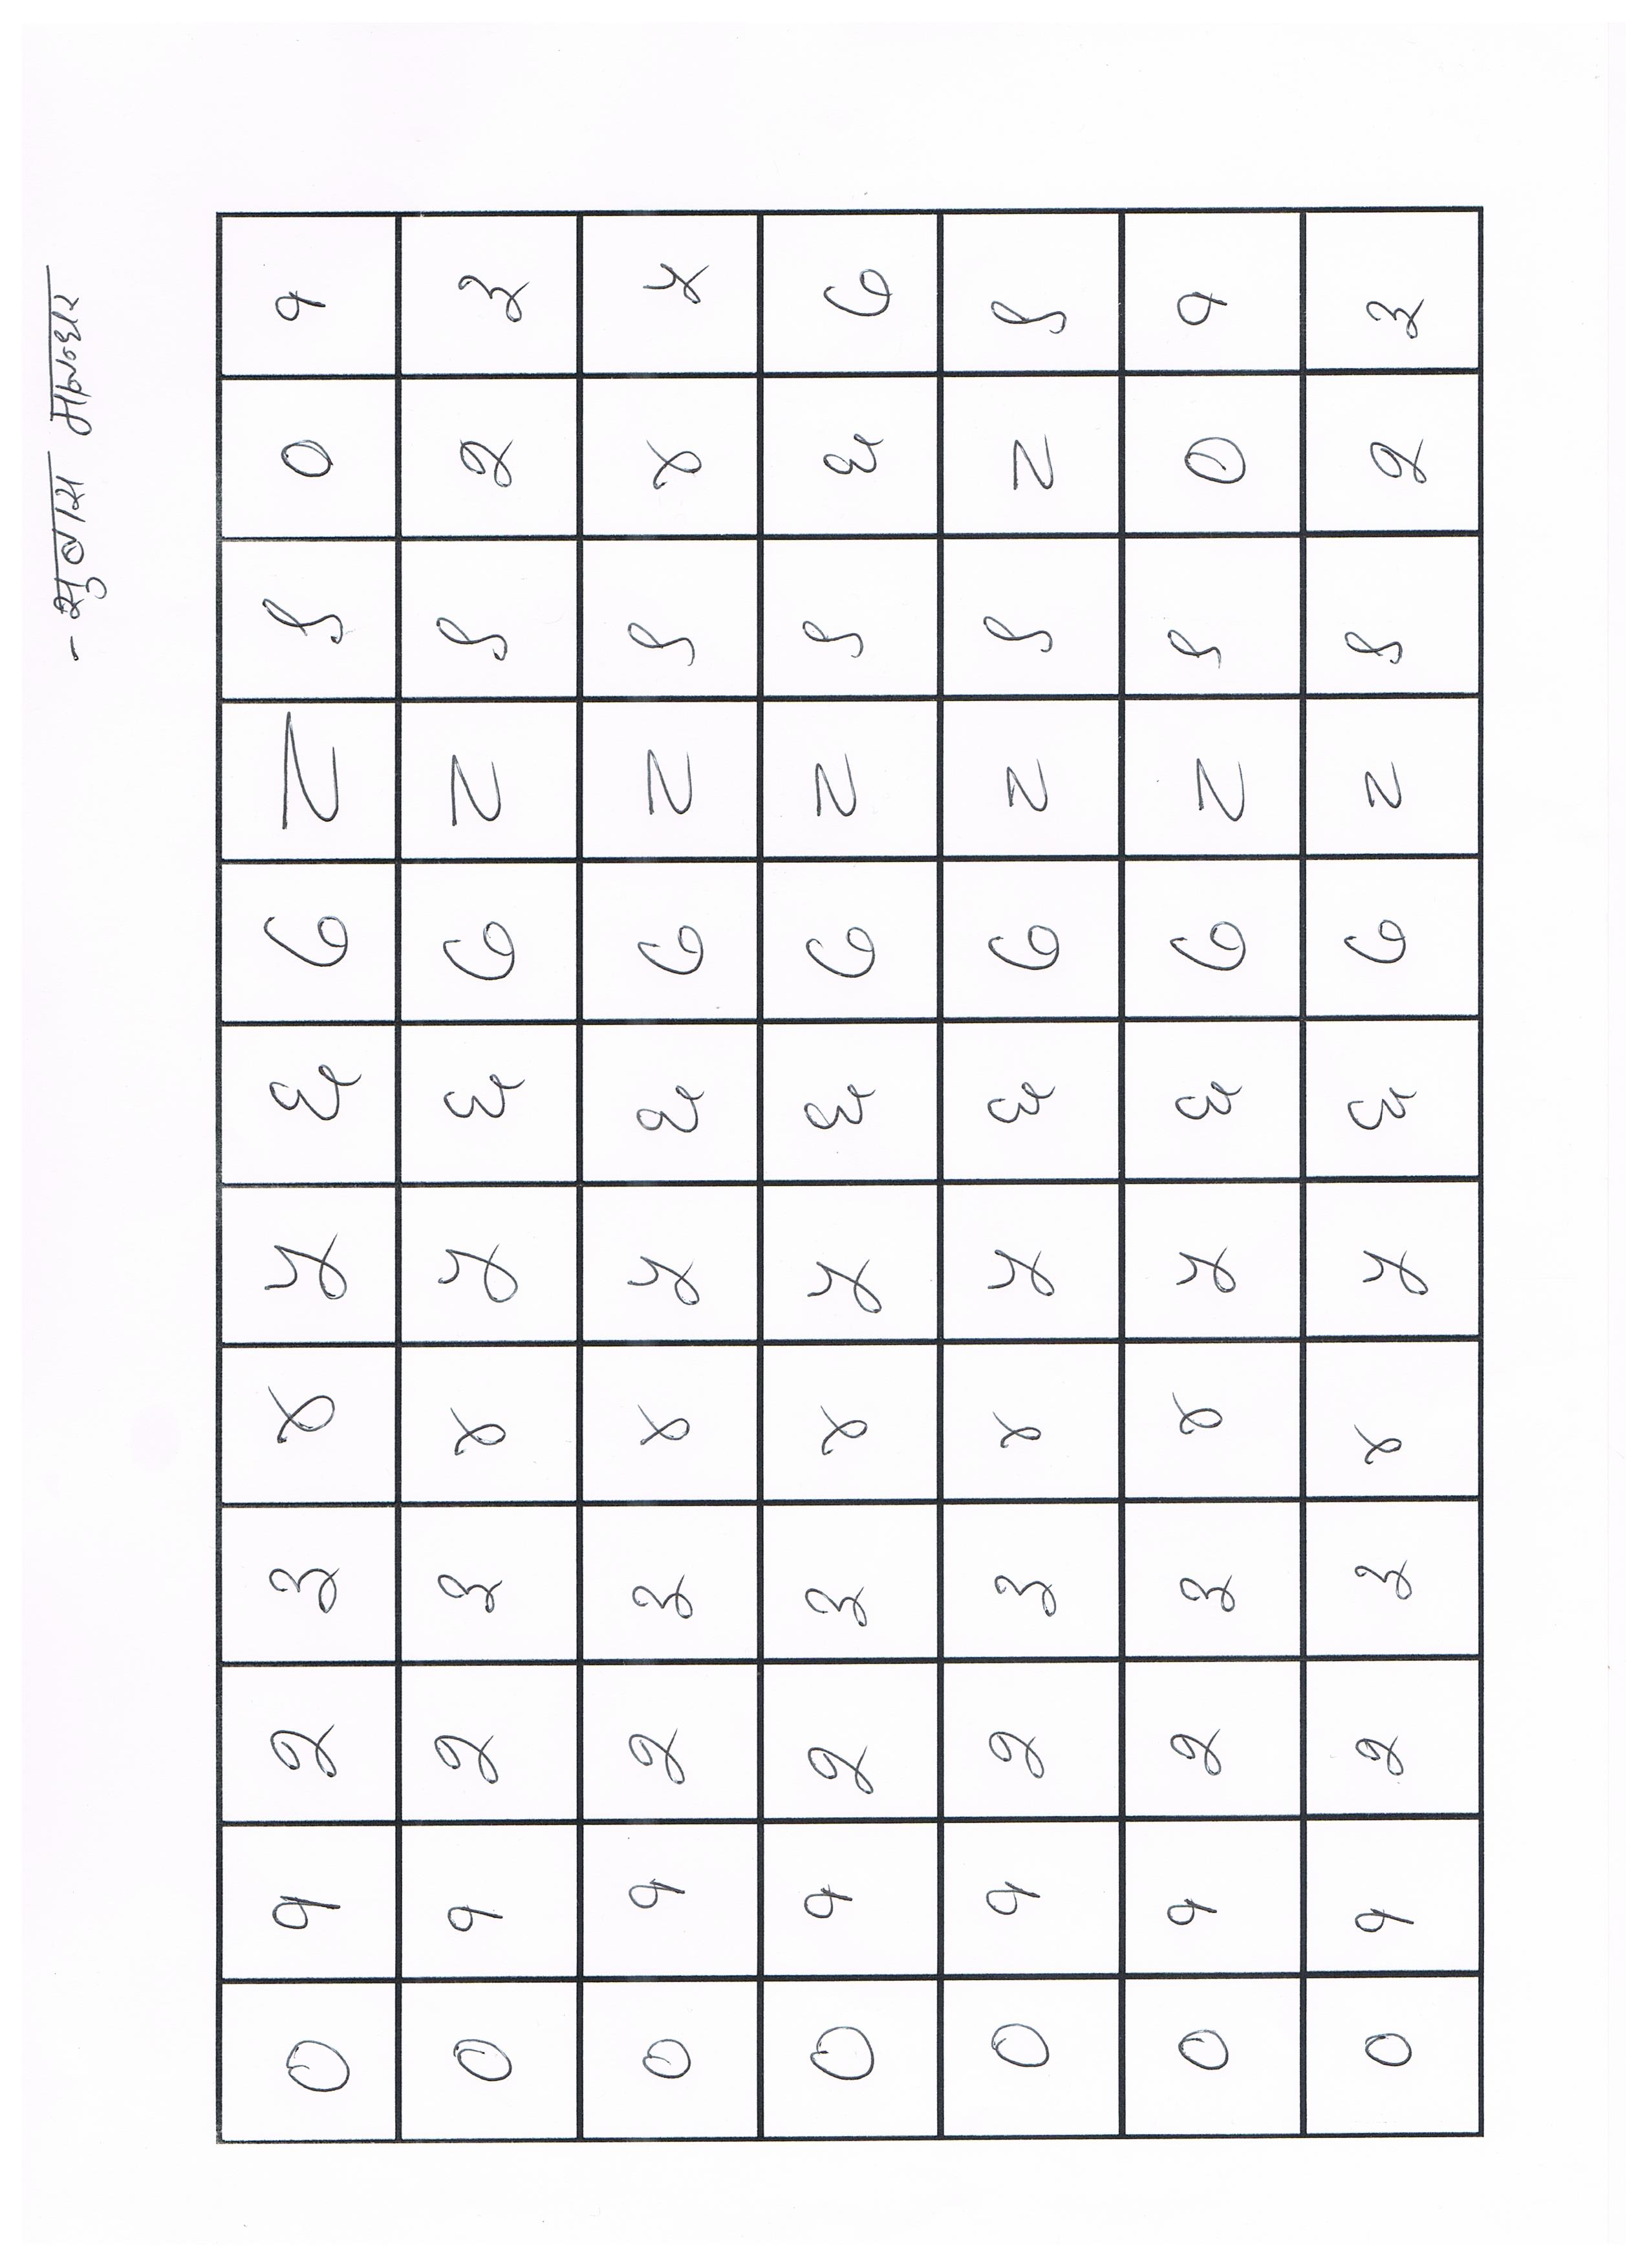 - सुवास मानन्धर
० १ २ ३ ४ ५ ६ ७ ८ ९ ० १
० १ २ ३ ४ ५ ६ ७ ८ ९ २ ३
० १ २ ३ ४ ५ ६ ७ ८ ९ ४ ५
० १ २ ३ ४ ५ ६ ७ ८ ९ ६ ७
० १ २ ३ ४ ५ ६ ७ ८ ९ ८ ९
० १ २ ३ ४ ५ ६ ७ ८ ९ ० १
० १ २ ३ ४ ५ ६ ७ ८ ९ २ ३